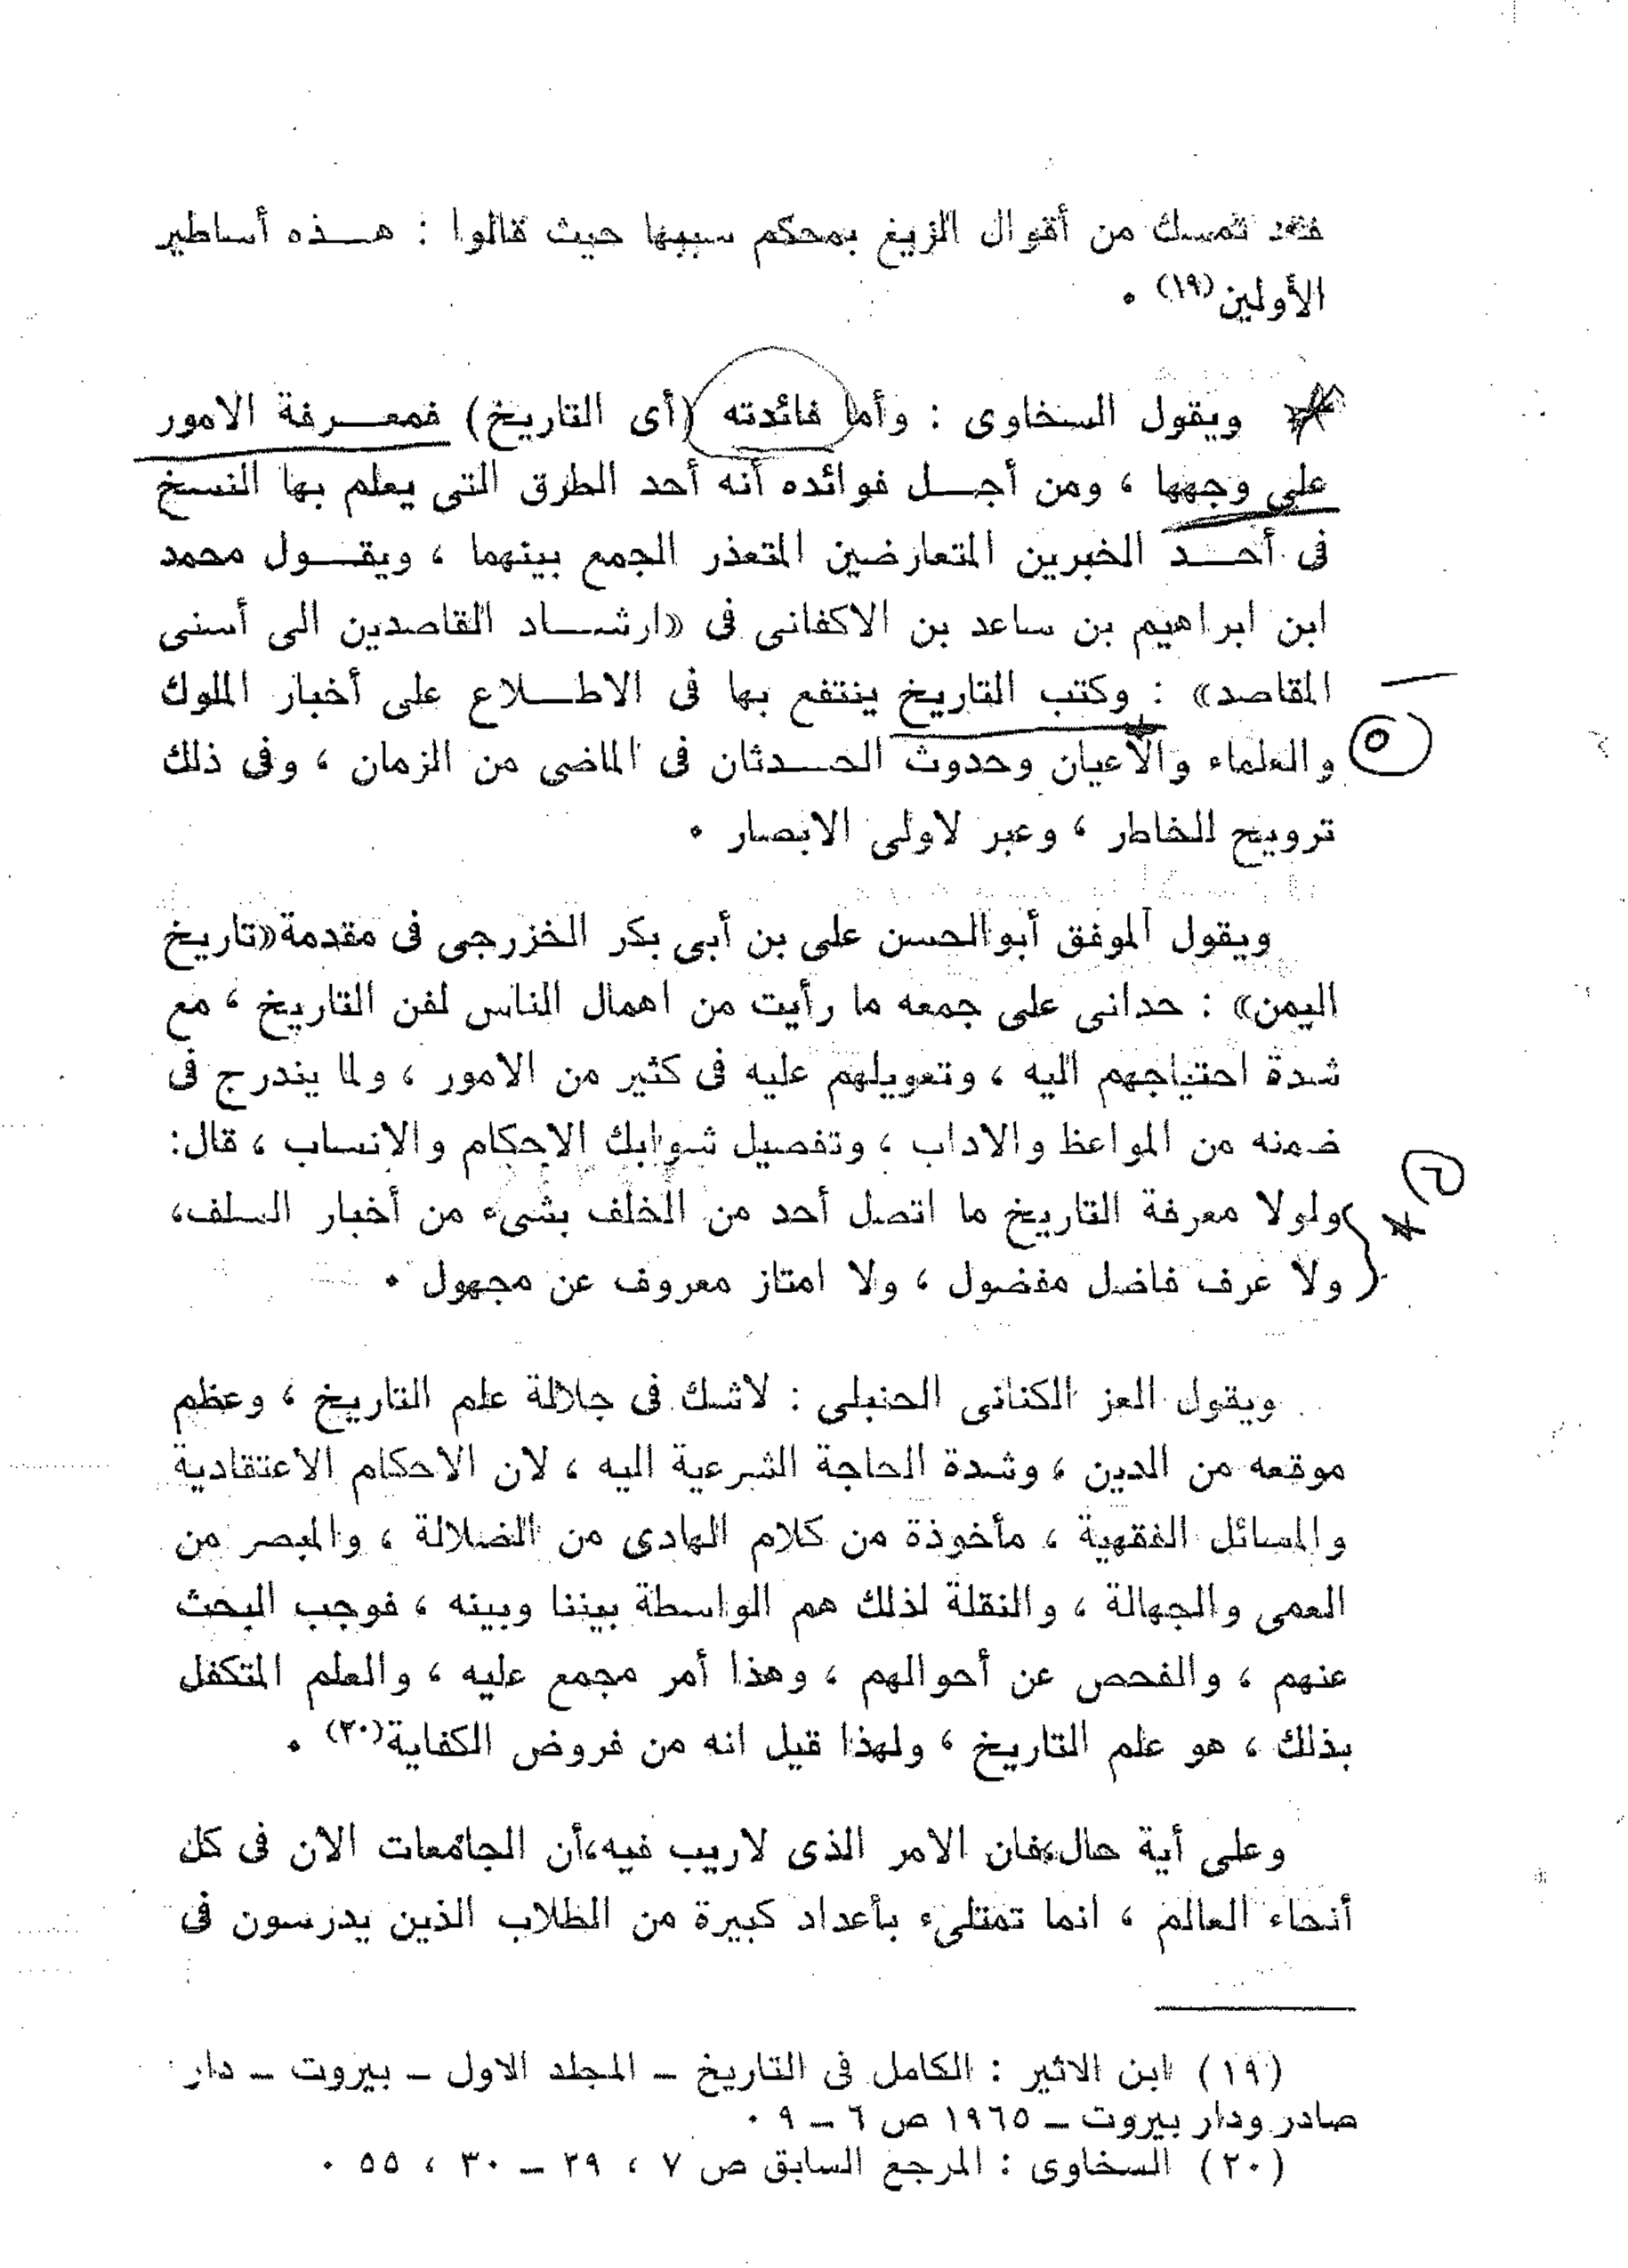 فقد تمسك من أقوال الزيغ بمحكم سببها حيث قالوا : هـــذه أساطير
الأولين(١٩) ٠
ويقول السخاوى : وأما فائدته (أى التاريخ) فمعـــرفة الامور
على وجهها ، ومن أجـــل فوائده أنه أحد الطرق التى يعلم بها النسخ
فى أحـــد الخبرين المتعارضين المتعذر الجمع بينهما ، ويقـــول محمد
ابن ابراهيم بن ساعد بن الاكفانى فى «ارشـــاد القاصدين الى أسنى
المقاصد» : وكتب التاريخ ينتفع بها فى الاطـــلاع على أخبار الملوك
والعلماء والأعيان وحدوث الحـــدثان فى الماضى من الزمان ، وفى ذلك
٥
ترويح للخاطر ، وعبر لاولى الابصار ٠
ويقول الموفق أبوالحسن على بن أبى بكر الخزرجى فى مقدمة«تاريخ
اليمن» : حدانى على جمعه ما رأيت من اهمال الناس لفن التاريخ ، مع
شدة احتياجهم اليه ، وتعويلهم عليه فى كثير من الامور ، ولما يندرج فى
ضمنه من المواعظ والاداب ، وتفصيل شوابك الاحكام والانساب ، قال:
٦
ولولا معرفة التاريخ ما اتصل أحد من الخلف بشىء من أخبار السلف،
ولا عرف فاضل مفضول ، ولا امتاز معروف عن مجهول ٠
ويقول العز الكنانى الحنبلى : لاشك فى جلالة علم التاريخ ، وعظم
موقعه من الدين ، وشدة الحاجة الشرعية اليه ، لان الاحكام الاعتقادية
والمسائل الفقهية ، مأخوذة من كلام الهادى من الضلالة ، والمبصر من
العمى والجهالة ، والنقلة لذلك هم الواسطة بيننا وبينه ، فوجب البحث
عنهم ، والفحص عن أحوالهم ، وهذا أمر مجمع عليه ، والعلم المتكفل
بذلك ، هو علم التاريخ ، ولهذا قيل انه من فروض الكفاية(٢٠) ٠
وعلى أية حال،فان الامر الذى لاريب فيه،أن الجامعات الان فى كل
أنحاء العالم ، انما تمتلىء بأعداد كبيرة من الطلاب الذين يدرسون فى
(١٩) ابن الاثير : الكامل فى التاريخ – المجلد الاول – بيروت – دار
صادر ودار بيروت – ١٩٦٥ ص ٦ – ٩ ٠
(٢٠) السخاوى : المرجع السابق ص ٧ ، ٢٩ – ٣٠ ، ٥٥ ٠